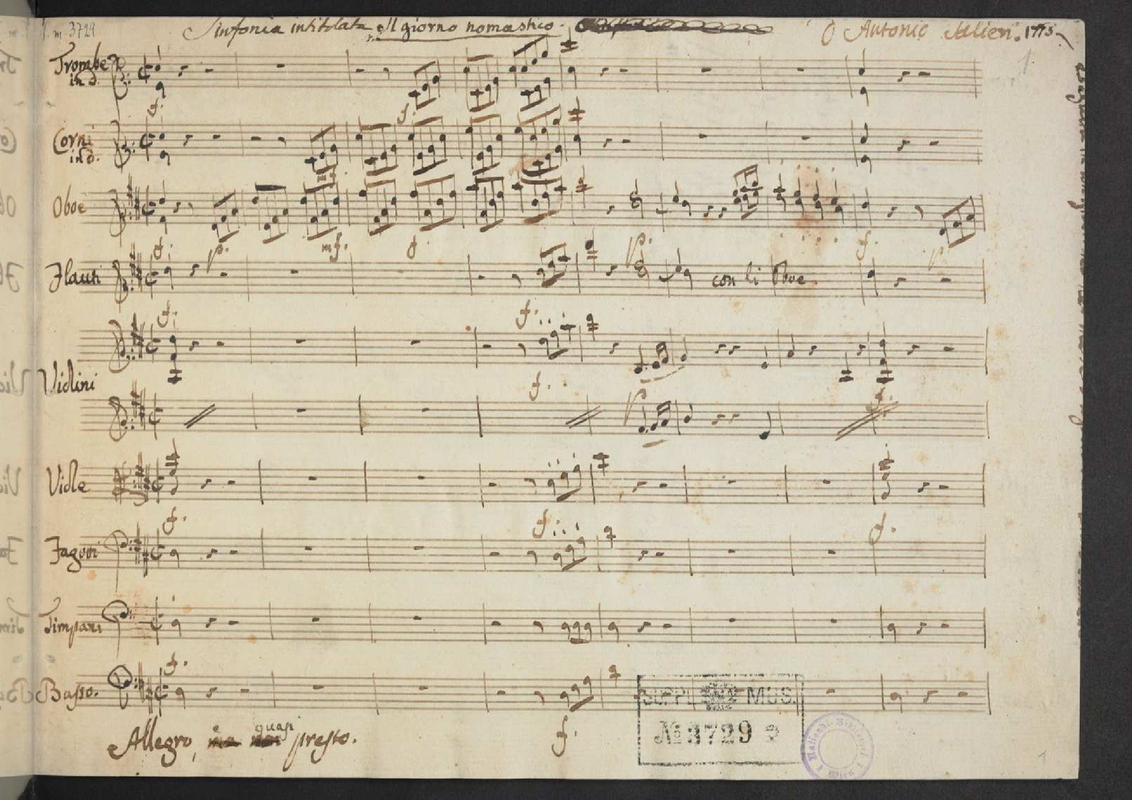 m. 3729
Sinfonia intitolata Il giorno nomastico. Antonio Salieri. 1775
1.
Trombe
in D.
f. f.
Corni
in D.
Oboe
f. p. mf. f p. f. p
Flauti
con li Oboe
f. f.
Violini
f.
p
Viole
f. f. f.
Fagotti
Timpani
f.
Basso.
Allegro, e quasi presto.
f.
SUPPL MUS.
No 3729
1